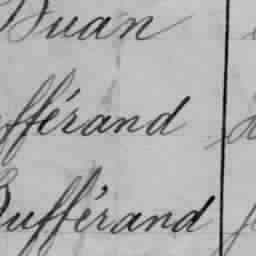 Duan
fférand
Bufférand